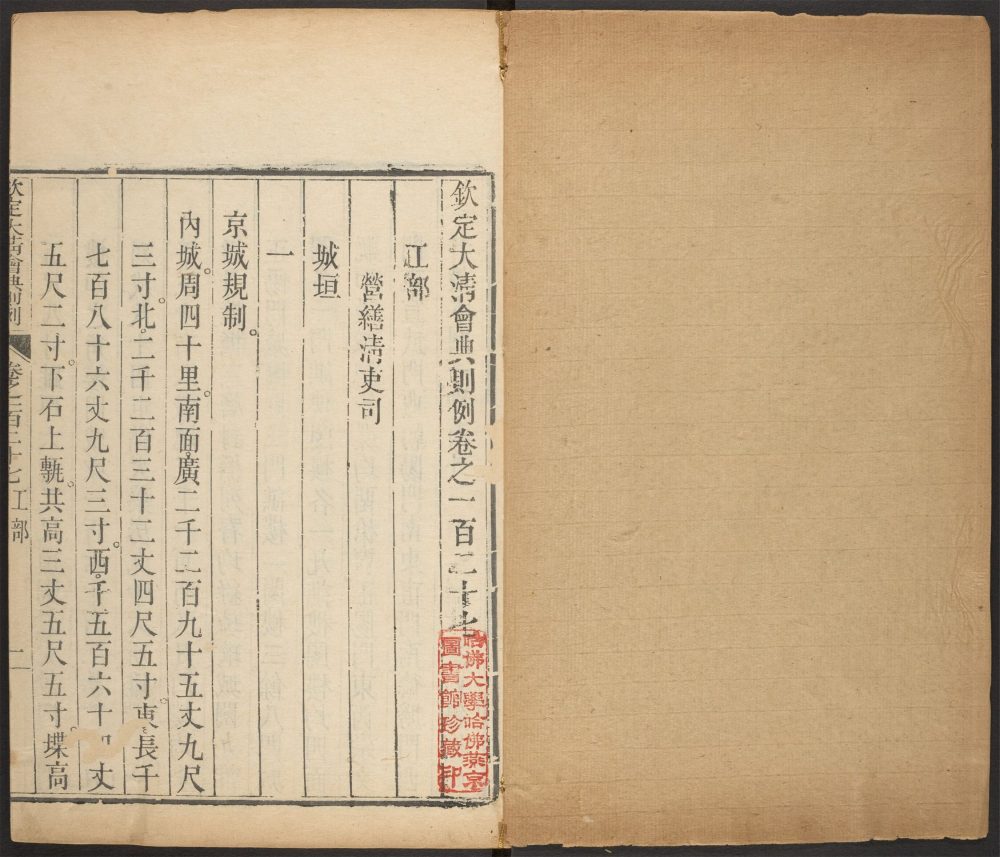 欽定大清會典則例卷之一百二十七
工部
營繕清吏司
城垣
一
京城規制。
內城。周四十里。南面廣二千二百九十五丈九尺
三寸。北。二千二百三十二丈四尺五寸。東。長千
七百八十六丈九尺三寸。西。千五百六十四丈
五尺二寸。下石上甎。共高三丈五尺五寸。堞高
欽定大清會典則例 卷之一百二十七 工部 一
哈佛大學哈佛燕京
圖書館珍藏印